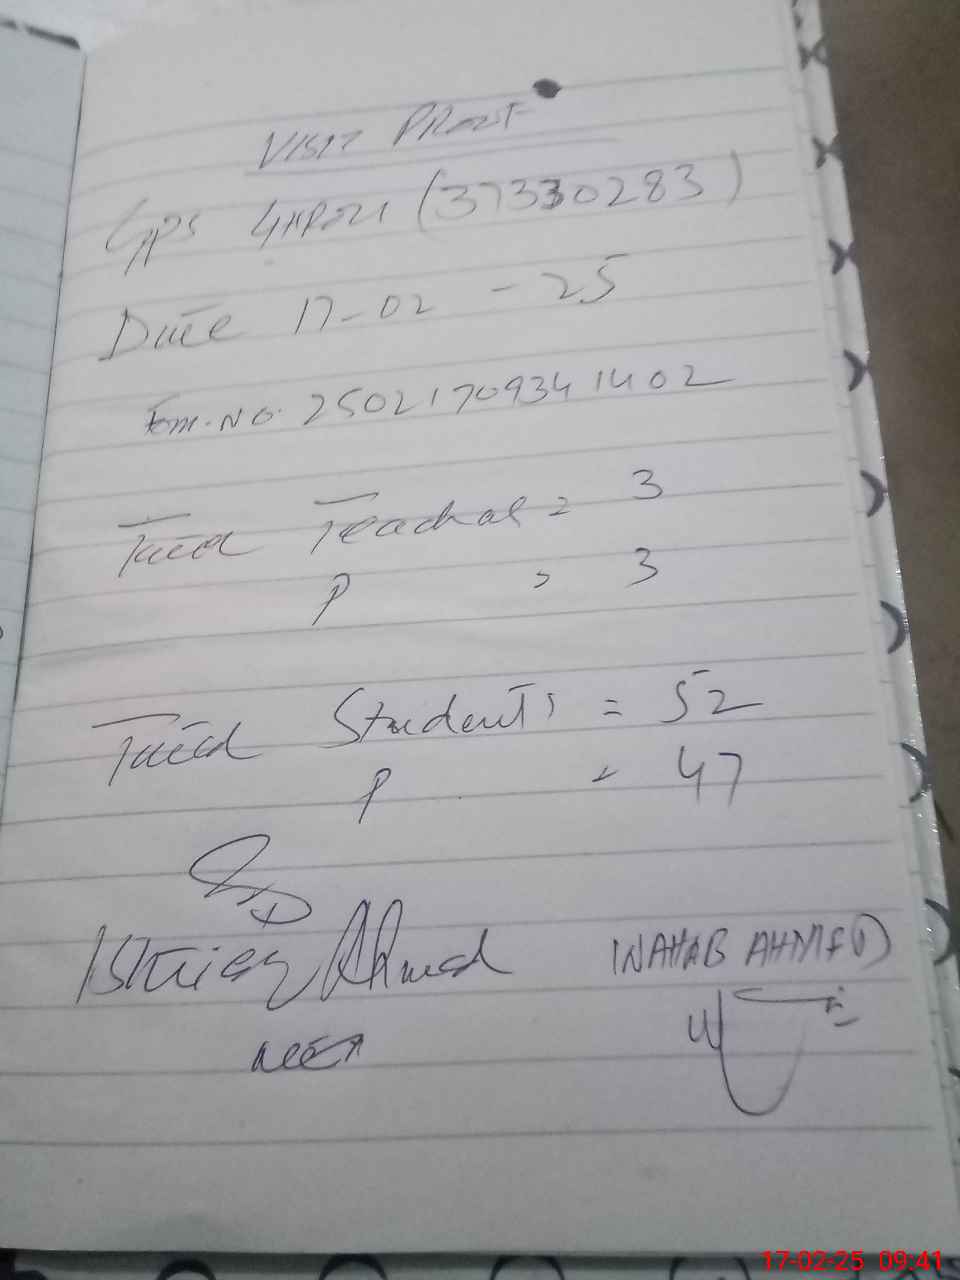 VISIT PROOF
GPS (37330283)
Date 17-02-25
No. 250217093411402
Total Teacher = 3
P = 3
Total Students = 52
P = 47
Ishtiaq Ahmed
WAHAB AHMED
17-02-25 09:41